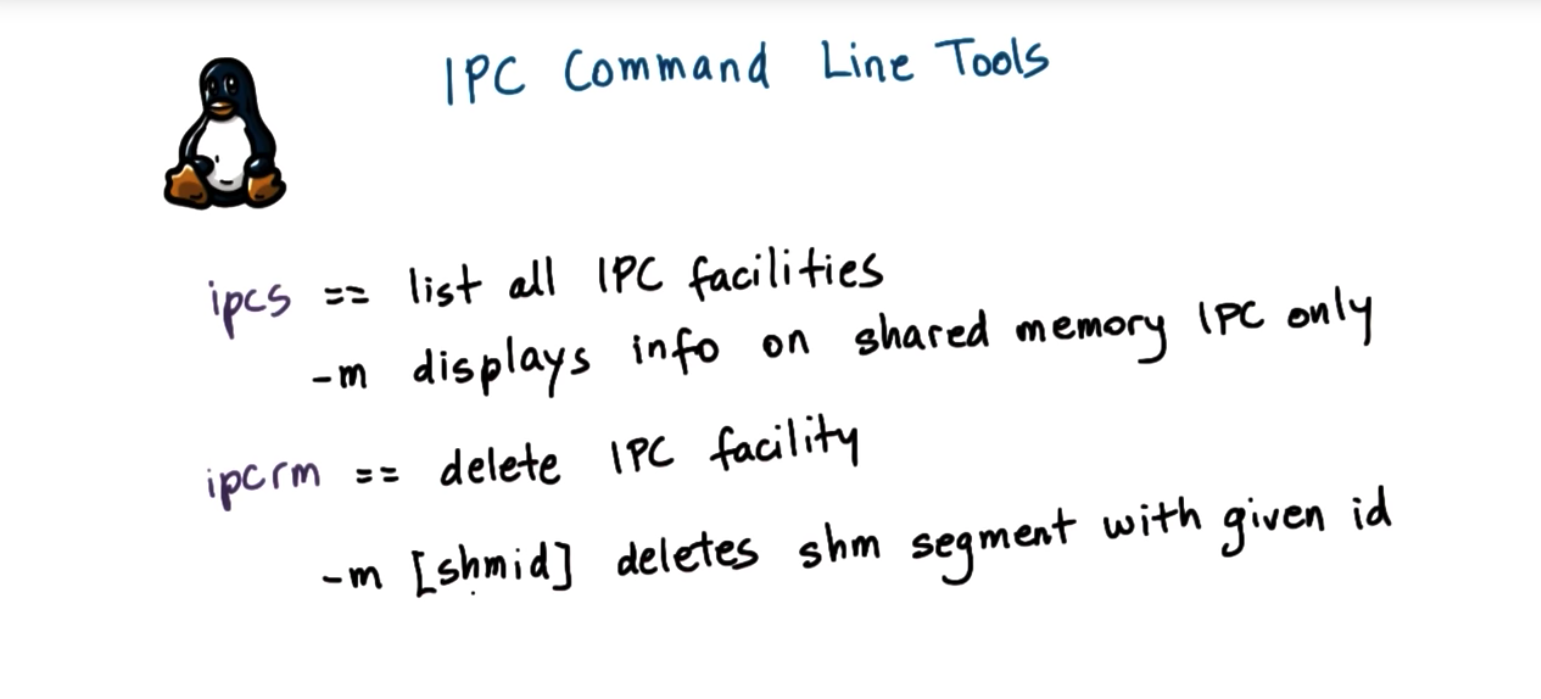 IPC Command Line Tools
ipcs == list all IPC facilities
-m displays info on shared memory IPC only
ipcrm == delete IPC facility
-m [shmid] deletes shm segment with given id